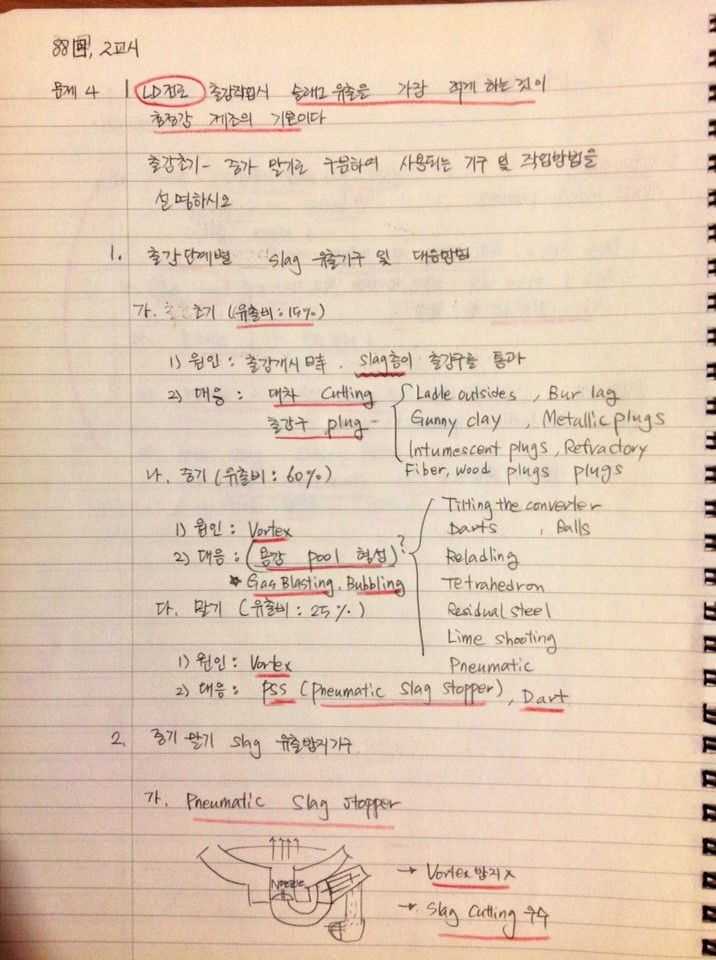 88회, 2교시
문제 4 LD전로 출강작업시 슬래그 유출을 가장 적게 하는 것이
청정강 제조의 기본이다
출강초기 - 중기 말기로 구분하여 사용되는 기구 및 작업방법을
설명하시오
1. 출강단계별 slag 유출기구 및 대응방법
가. 출강초기 (유출비 : 15%)
1) 원인 : 출강개시 时, slag층이 출강구를 통과
2) 대응 : 대차 Cutting
출강구 plug -
Ladle outsides, Bur lag
Gunny clay, Metallic plugs
Intumescent plugs, Refractory
Fiber, wood plugs plugs
나. 중기 (유출비 : 60%)
1) 원인 : Vortex
2) 대응 : (용강 pool 형성)?
Gas Blasting, Bubbling
Tilting the converter
Darts, Balls
Reladling
Tetrahedron
Residual steel
Lime shooting
Pneumatic
다. 말기 (유출비 : 25%)
1) 원인 : Vortex
2) 대응 : PSS (Pneumatic Slag stopper), Dart
2. 중기 말기 slag 유출방지기구
가. Pneumatic Slag stopper
Nozzle
→ Vortex방지 x
→ Slag Cutting 우수